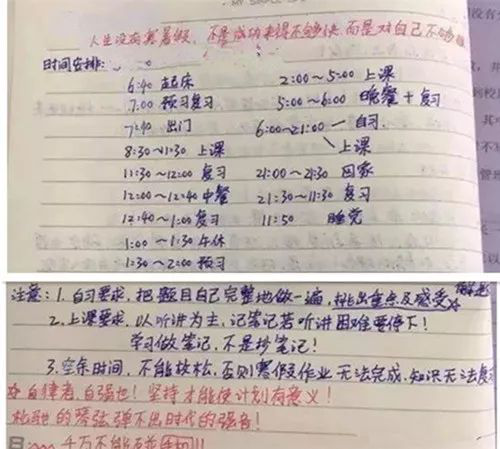 人生没有寒暑假,不是成功来得不够快,而是对自己不够狠
时间安排:
6:40 起床
7:00 预习复习
7:40 出门
8:30~11:30 上课
11:30~12:00 复习
12:00~12:40 中餐
12:40~1:00 复习
1:00~1:30 午休
1:30~2:00 预习
2:00~5:00 上课
5:00~6:00 晚餐+复习
6:00~21:00 一 自习
上课
21:00~21:30 回家
21:30~11:30 复习
11:50 睡觉
注意:1. 自习要求,把题目自己完整地做一遍,挑出重点及感受
2. 上课要求,以听讲为主,记笔记若听讲困难要停下!
学习做笔记,不是抄笔记!
3. 空余时间,不能放松,否则寒假作业无法完成,知识无法复
自律者,自强也!坚持才能使计划有意义!
松驰的琴弦弹不出时代的强音!
千万不能